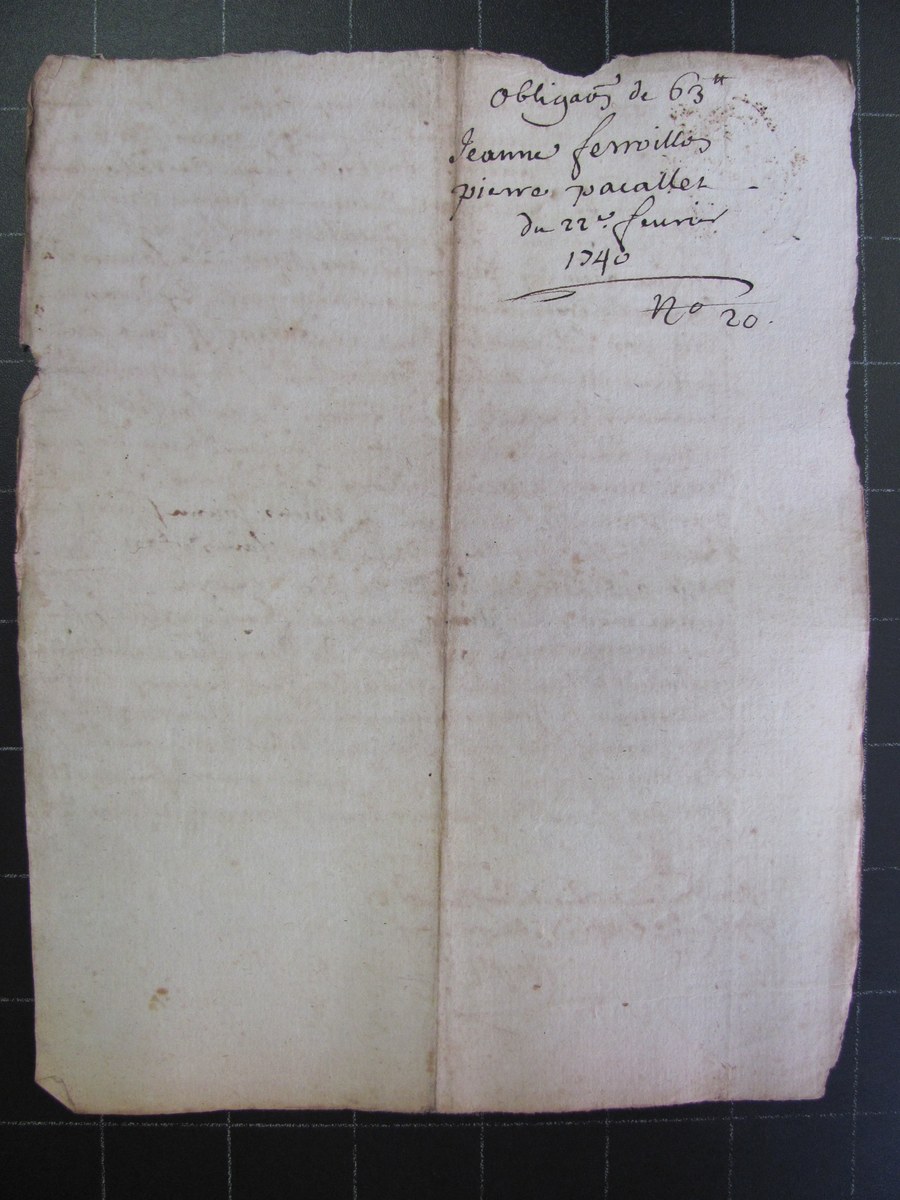 Obligaõn de 63ᵗᵗ
Jeanne ferroillon
pierre pacallet
du 22e. feurier
1740
No 20.